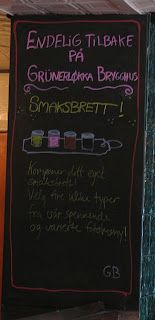 ENDELIG TILBAKE
PÅ
GRÜNERLØKKA BRYGGHUS
SMAKSBRETT!
Komponer ditt eget
smaksbrett!
Velg fire ulike typer
fra vår spennende
og varierte
GB